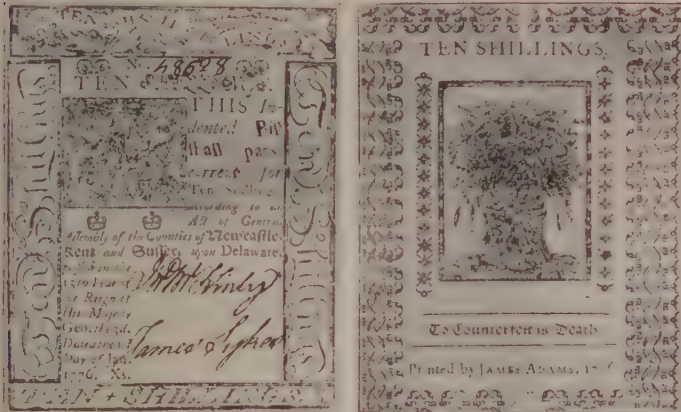 TEN SHILLINGS
No. 48628
TEN
THIS In-
dented Bill
shall pass
current for
Ten Shillings
according to an
Act of General
Assembly of the Counties of Newcastle,
Kent and Sussex, upon Delaware,
Year of
the Reign of
His Majesty
Geo. the 3d.
Dated the
Day of Jan.
1776. Xs.
Ten Shillings
Ten Shillings
James Sykes
TEN SHILLINGS
TEN SHILLINGS.
To Counterfeit is Death.
Printed by JAMES ADAMS, 1776